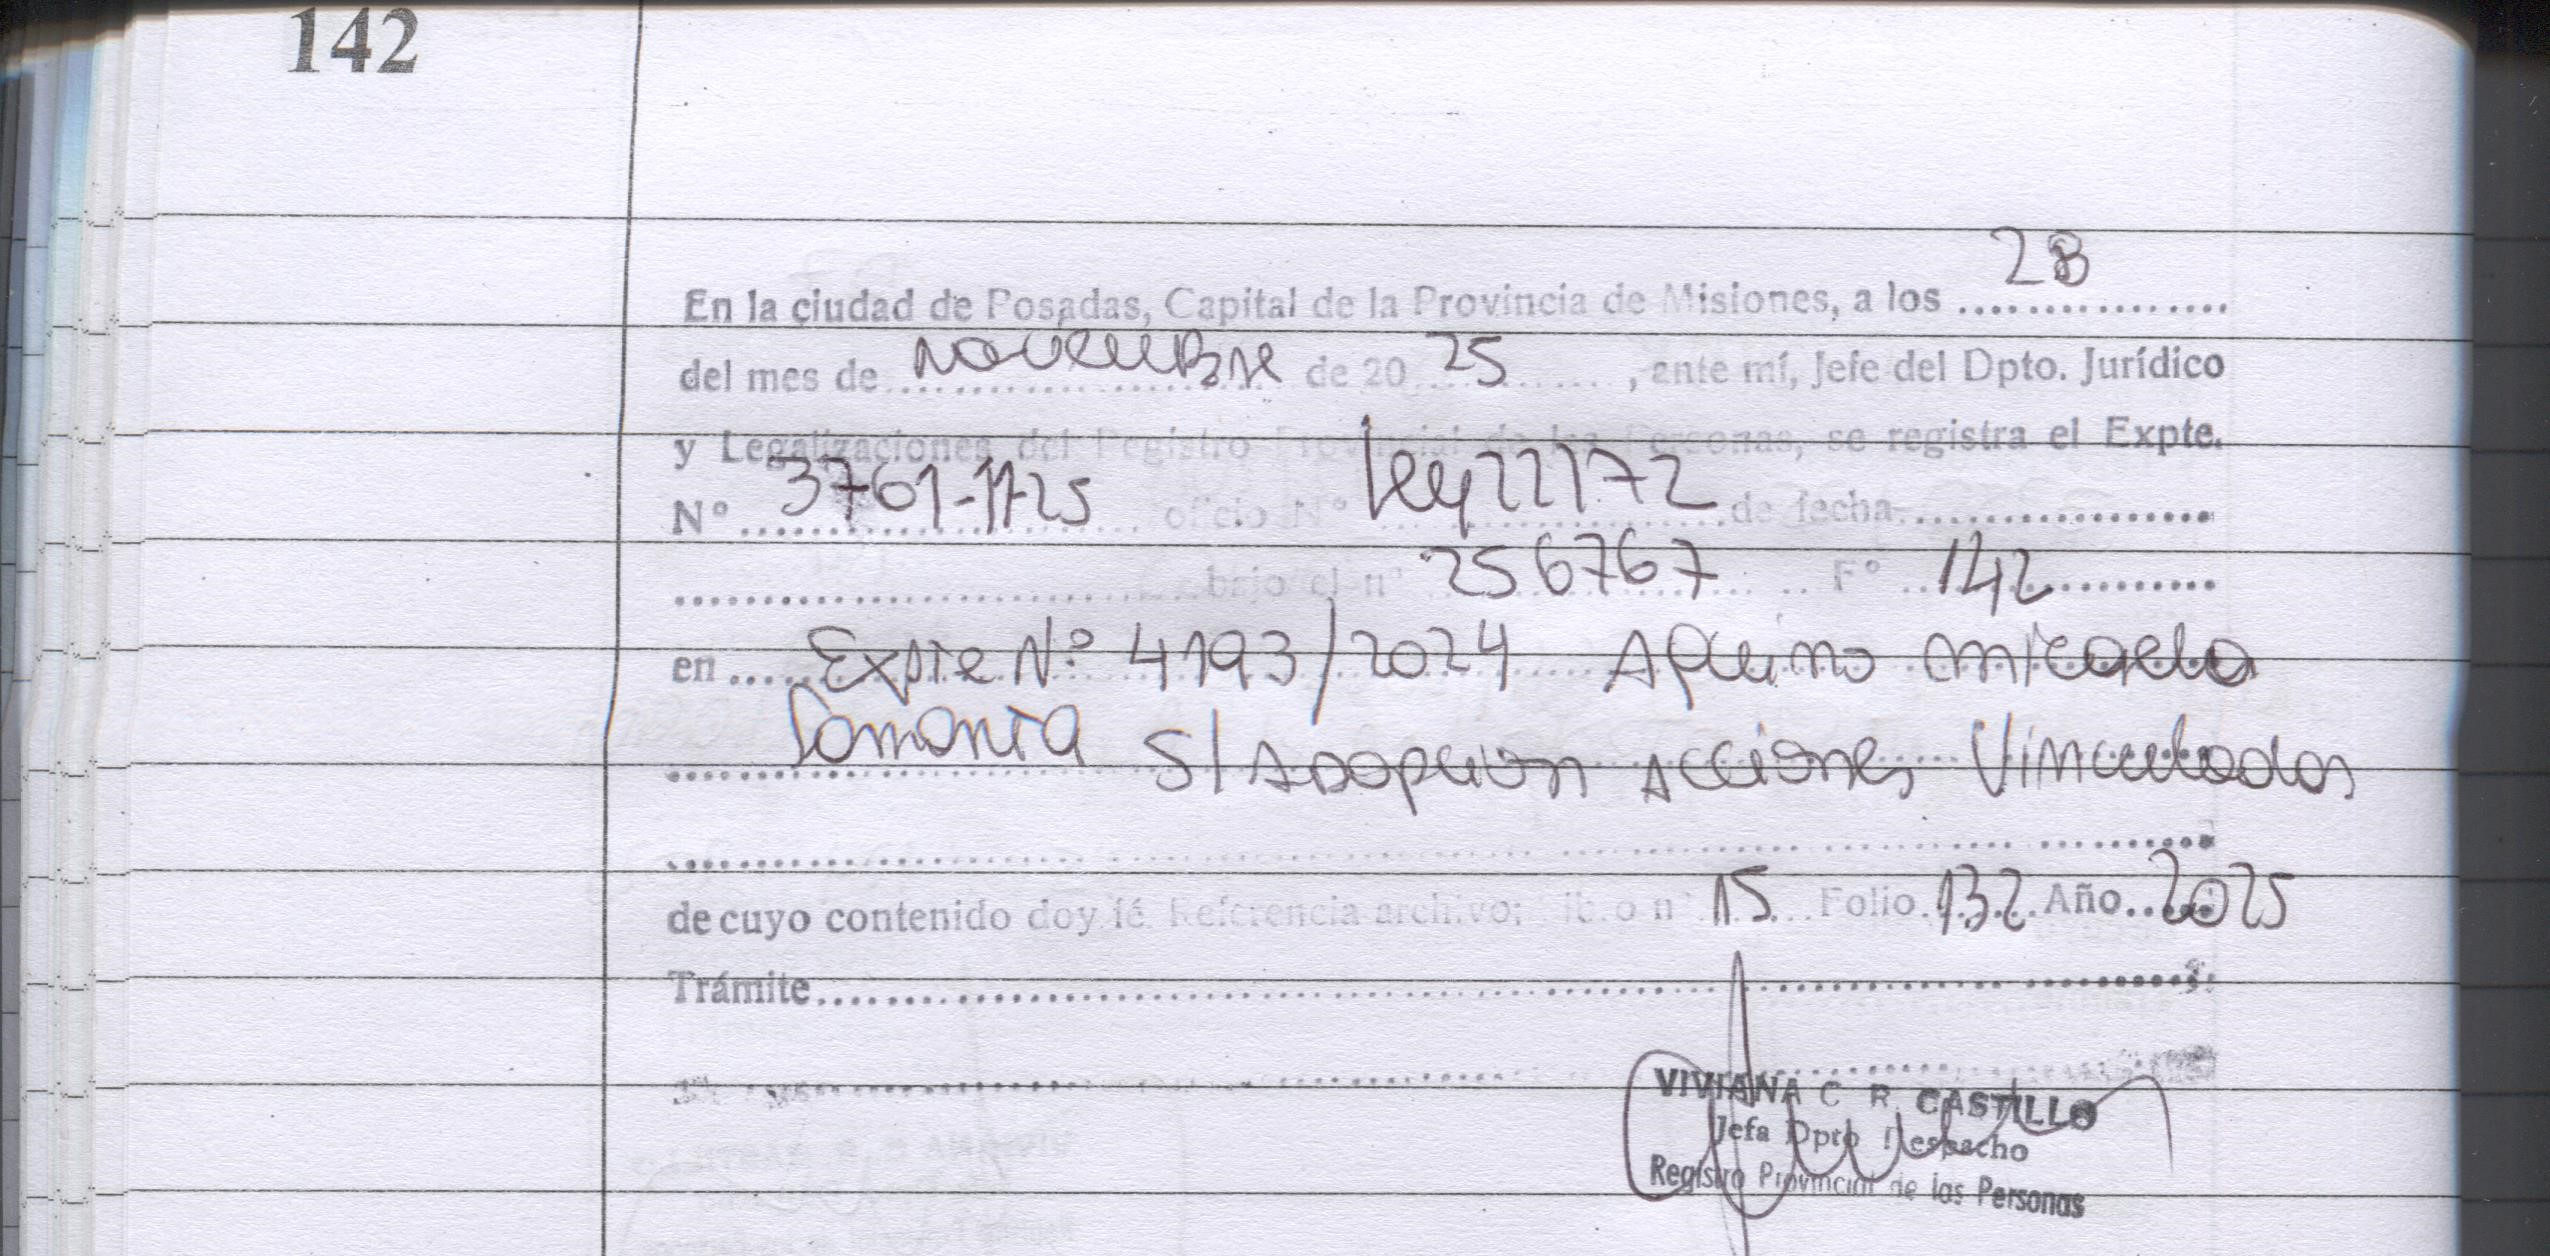 142
En la ciudad de Posadas, Capital de la Provincia de Misiones, a los 28
del mes de noviembre de 20 25, ante mí, Jefe del Dpto. Jurídico
y Legalizaciones del Registro Provincial de las Personas, se registra el Expte.
N° 3761-11-25 oficio N° ley 22172 de fecha
bajo el n° 256767 F° 142
en Expte N° 4193/2024 Aquino Micaela
Samanta S/ Adopcion Acciones Vinculadas
de cuyo contenido doy fé Referencia archivo: libro n° 15 Folio 132 Año 2025
Trámite
VIVIANA C R CASTILLO
Jefa Dpto Despacho
Registro Provincial de las Personas